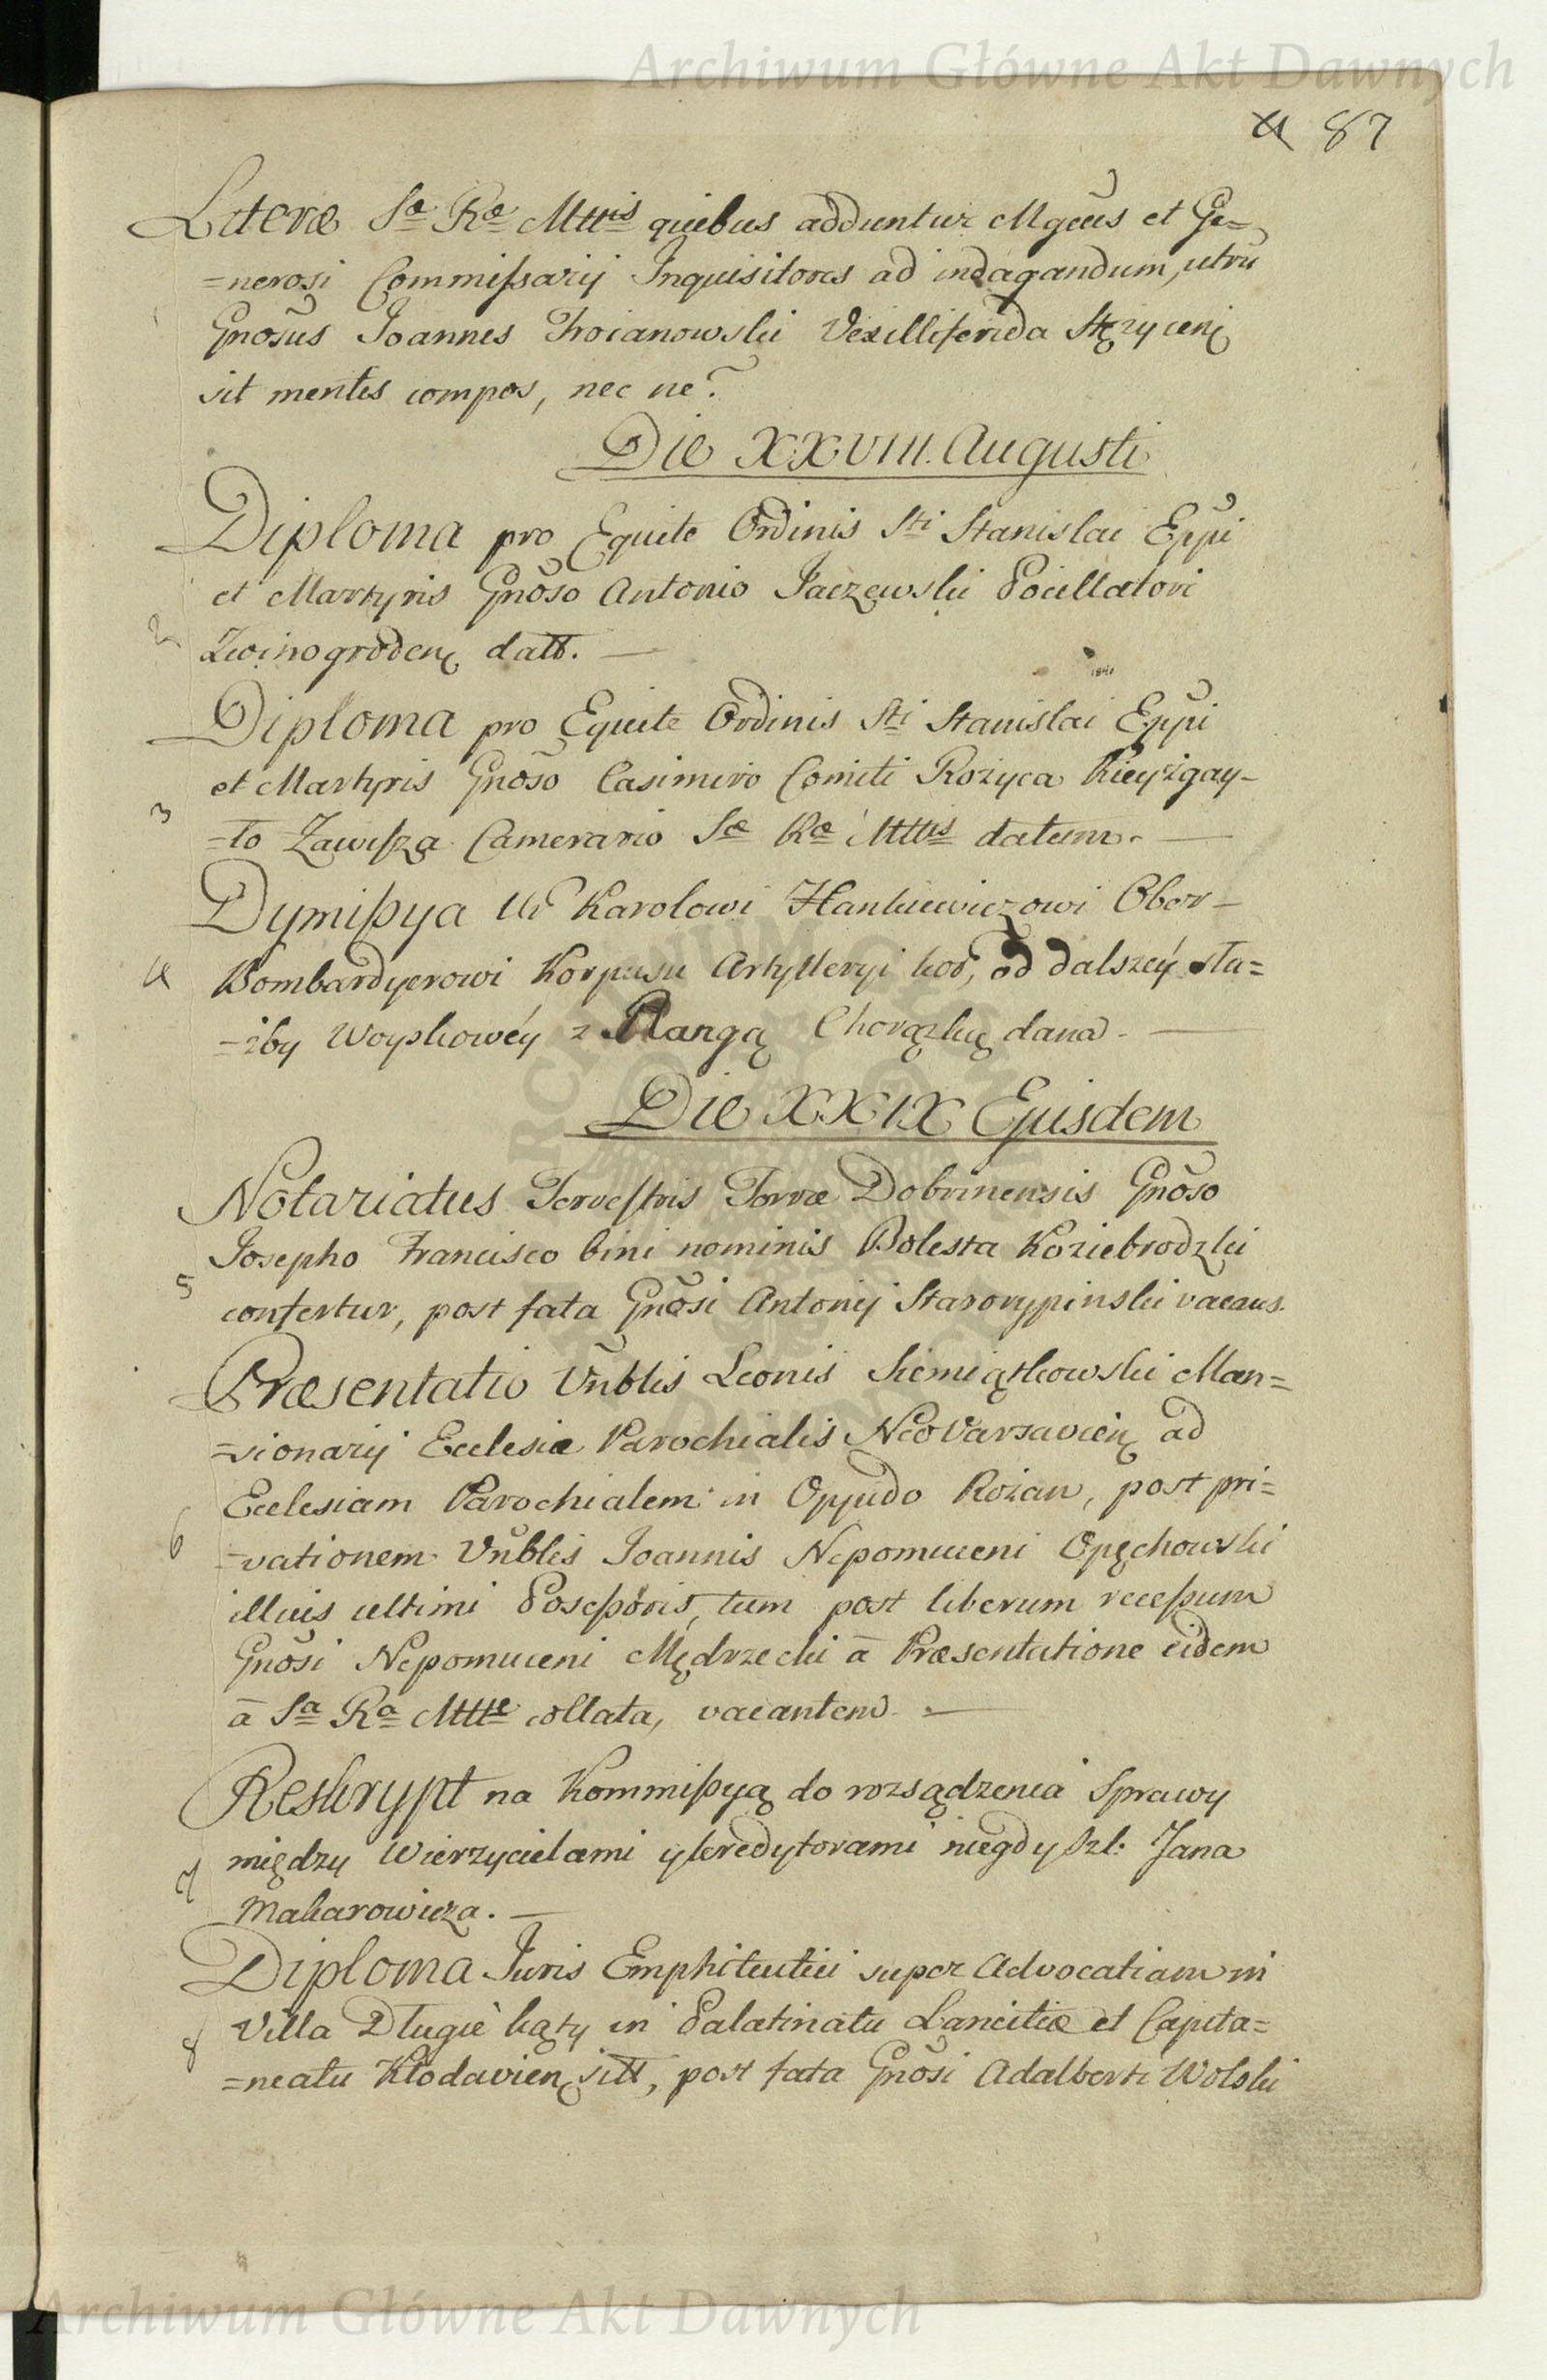 Archiwum Główne Akt Dawnych
87
Literæ Sæ Ræ Mttis quibus adduntur Mgcus et Ge=
=nerosi Commißarij Inquisitores ad indagandum, utrũ
Gnõsus Joannes Troianowski Vexilliferida Stężycen̄
sit mentis compos, nec ne?
Die XXVIII. Augusti
Diploma pro Equite Ordinis Sti Stanislai Eppi
et Martyris Gnõso Antonio Jaczewski Pocillatori
2
Zwinogroden̄ datt. —
Diploma pro Equite Ordinis Sti Stanislai Eppi
et Martyris Gnõso Casimiro Comiti Rożyca Kieyzgay-
3
=ło Zawißza Camerario Sæ Ræ Mttis datum. —
Dymißya Ur Karolowi Hankiewiczowi Ober-
4
Bombardyerowi Korpusu Artylleryi kor, od dalszéy słu=
=żby Woyskowéy z Rangą Chorążką dana. —
Die XXIX Ejusdem
Notariatus Terrestris Terræ Dobrinensis Gnõso
Josepho Francisco bini nominis Bolesta Koziebrodzki
5
confertur, post fata Gnõsi Antonij Starorypinski vacans.
Præsentatio Vnblis Leonis Siemiątkowski Man=
=sionarij Ecclesiæ Parochialis NeoVarsavien̄ ad
Ecclesiam Parochialem in Oppido Rożan, post pri=
6
=vationem Vnblis Joannis Nepomuceni Opęchowski
illius ultimi Poseßoris, tum post liberum receßum
Gnõsi Nepomuceni Mędrzecki ā Præsentatione eidem
ā Sa Ra Mtte collata, vacantem. —
Reskrypt na Kommißyą do rozsądzenia Sprawy
między Wierzycielami y kredytorami niegdy Szl: Jana
7
Makarowicza. —
Diploma Juris Emphiteutici super Advocatiam in
Villa Długie kąty in Palatinatu Lanciciæ et Capita=
8
=neatu Kłodavien̄ sitt, post fata Gnõsi Adalberti Wolski
Archiwum Główne Akt Dawnych